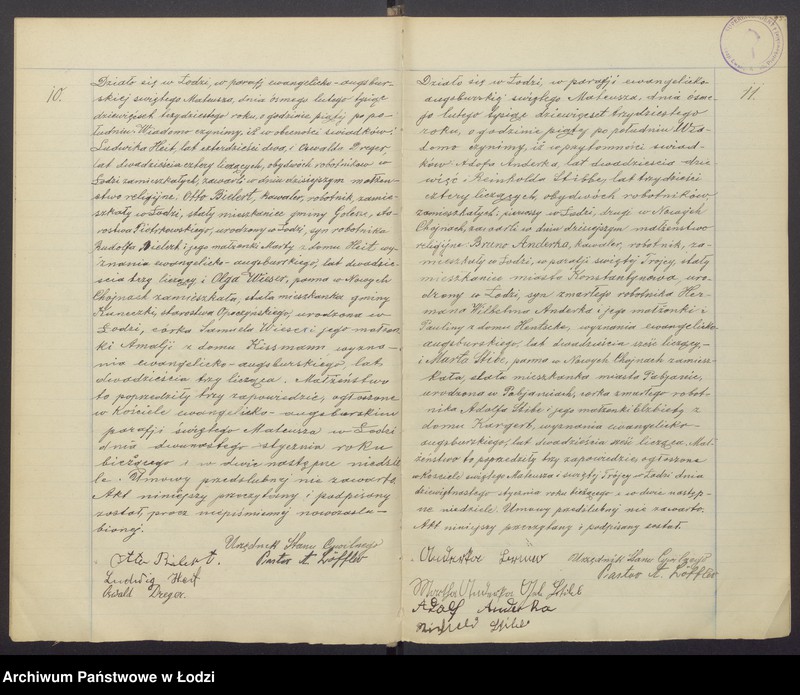 10.
Działo się w Łodzi, w parafji ewangelicko-augsbur-
skiej świętego Mateusza, dnia ósmego lutego tysiąc
dziewięćset trzydziestego roku, o godzinie piątej po po-
łudniu. Wiadomo czynimy, iż w obecności świadków:
Ludwika Heit, lat czterdzieści dwa, i Oswalda Dreger
lat dwadzieścia cztery liczących, obydwóch robotników w
Łodzi zamieszkałych, zawarto w dniu dzisiejszym małżeń-
stwo religijne. Otto Bielert, kawaler, robotnik, zamie-
szkały w Łodzi, stały mieszkaniec gminy sta-
rostwa Piotrkowskiego, urodzony w Łodzi, syn robotnika
Rudolfa Bielert i jego małżonki Marty z domu Heit, wy-
znania ewangelicko-augsburskiego, lat dwadzie-
ścia trzy liczący i Olga Wieser, panna w Nowych
Chojnach zamieszkała, stała mieszkanka gminy
Kuniczki, starostwa Opoczyńskiego, urodzona w
Łodzi, córka Samuela Wieser i jego małżon-
ki Amalji z domu Kissmann, wyzna-
nia ewangelicko-augsburskiego, lat
dwadzieścia trzy licząca. Małżeństwo
to poprzedziły trzy zapowiedzie, ogłoszone
w Kościele ewangelicko-augsburskim
parafji świętego Mateusza w Łodzi
dnia dwunastego stycznia roku
bieżącego i w dwie następne niedzie-
le. Umowy przedślubnej nie zawarto.
Akt niniejszy przeczytany i podpisany
został, prócz niepiśmiennej nowozaślu-
bionej.
Urzędnik Stanu Cywilnego
Otto Bielert. Pastor A. Löffler
Ludwig Heit
Oswald Dreger.
11.
Działo się w Łodzi, w parafji ewangelicko-
augsburskiej świętego Mateusza, dnia ósme-
go lutego tysiąc dziewięćset trzydziestego
roku, o godzinie piątej po południu. Wia-
domo czynimy, iż w przytomności świad-
ków: Adolfa Anderka, lat dwadzieścia dzie-
więć i Reinholda Stibbe, lat trzydzieści
cztery liczących, obydwóch robotników,
zamieszkałych: pierwszy w Łodzi, drugi w Nowych
Chojnach, zawarto w dniu dzisiejszym małżeństwo
religijne Bruno Anderka, kawaler, robotnik, za-
mieszkały w Łodzi, w parafji świętej Trójcy, stały
mieszkaniec miasta Konstantynowa, uro-
dzony w Łodzi, syn zmarłego robotnika Her-
mana Wilhelma Anderka i jego małżonki
Pauliny z domu Hentschke, wyznania ewangelicko-
augsburskiego, lat dwadzieścia sześć liczący, —
i Marta Stibe, panna w Nowych Chojnach zamiesz-
kała, stała mieszkanka miasta Pabjanic,
urodzona w Pabjanicach, córka zmarłego robot-
nika Adolfa Stibe i jego małżonki Elżbiety z
domu Kargert, wyznania ewangelicko-
augsburskiego, lat dwadzieścia sześć licząca. Mał-
żeństwo to poprzedziły trzy zapowiedzie, ogłoszone
w kościele świętego Mateusza i świętej Trójcy w Łodzi dnia
dziewiętnastego stycznia roku bieżącego i w dwie następ-
ne niedziele. Umowy przedślubnej nie zawarto.
Akt niniejszy przeczytany i podpisany został.
Anderka Bruno Urzędnik Stanu Cywilnego
Pastor A. Löffler
Martha Anderka Stibe
Adolf Anderka
Stibe
Archiwum Państwowe w Łodzi